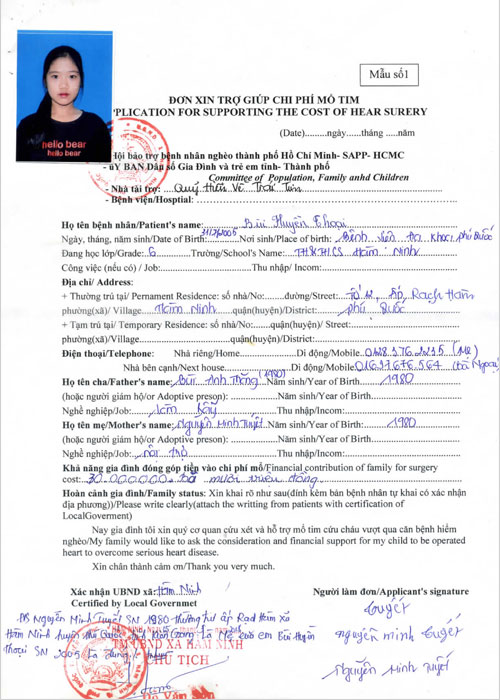 hello bear
hello bear
Mẫu số1
ĐƠN XIN TRỢ GIÚP CHI PHÍ MỔ TIM
PLICATION FOR SUPPORTING THE COST OF HEAR SURERY
(Date)........ngày......tháng ....năm
Hội bảo trợ bệnh nhân nghèo thành phố Hồ Chí Minh- SAPP- HCMC
- ủY BAN Dân số Gia Đình và trẻ em tỉnh- Thành phố
Committee of Population, Family anhd Children
- Nhà tài trợ: Quỹ Hiểu Về Trái Tim
- Bệnh viện/Hosptial:
Họ tên bệnh nhân/Patient's name: Bùi Huyền Thoại
Ngày, tháng, năm sinh/Date of Birth: 2005 Nơi sinh/Place of birth: Bệnh viện Đa Khoa Phú Quốc
Đang học lớp/Grade: 6 Trường/School's Name: TH&THCS Hàm Ninh
Công việc (nếu có) / Job: Thu nhập/ Incom:
Địa chỉ/ Address:
+ Thường trú tại/ Pernament Residence: số nhà/No: đường/Street: Tổ 12, ấp, Rạch Hàm
phường(xã)/ Village Hàm Ninh quận(huyện)/ District: Phú Quốc
+ Tạm trú tại/ Temporary Residence: số nhà/No: quận(huyện)/ Street:
phường(xã)/Village quận(huyện)/District:
Điện thoại/Telephone: Nhà riêng/Home Di động/Mobile (Mẹ)
Nhà bên cạnh/Next house Di động/Mobile (bà Ngoại)
Họ tên cha/Father's name: Bùi Anh Thắng (1980) Năm sinh/Year of Birth 1980
(hoặc người giám hộ/or Adoptive preson): Năm sinh/Year of Birth
Nghề nghiệp/Job: Thu nhập/Incom:
Họ tên mẹ/Mother's name: Nguyễn Minh Tuyết Năm sinh/Year of Birth: 1980
(hoặc người giám hộ/or Adoptive preson): Năm sinh/Year of Birth
Nghề nghiệp/Job: Nội trợ Thu nhập/Incom:
Khả năng gia đình đóng góp tiền vào chi phí mổ/Financial contribution of family for surgery
cost: 30.000.000. ba mươi triệu đồng.
Hoàn cảnh gia đình/Family status: Xin khai rõ như sau(đính kèm bản bệnh nhân tự khai có xác nhận
địa phường))/Please write clearly(attach the writting from patients with certification of
LocalGoverment)
Nay gia đình tôi xin quý cơ quan cứu xét và hỗ trợ mổ tim cứu cháu vượt qua cằn bệnh hiểm
nghèo/My family would like to ask the consideration and financial support for my child to be operated
heart to overcome serious heart disease.
Xin chân thành cảm ơn/Thank you very much.
Xác nhận UBND xã: Hàm Ninh
Certified by Local Governmet
Người làm đơn/Applicant's signature
Tuyết
Nguyễn Minh Tuyết SN 1980 thường trú ấp Rạch Hàm xã
Hàm Ninh huyện Phú Quốc tỉnh Kiên Giang là Mẹ của em Bùi Huyền
Thoại SN 2005 là đúng
Nguyễn minh Tuyết
TM UBND XÃ HÀM NINH
CHỦ TỊCH
Nguyễn Minh Tuyết
Văn Sơn